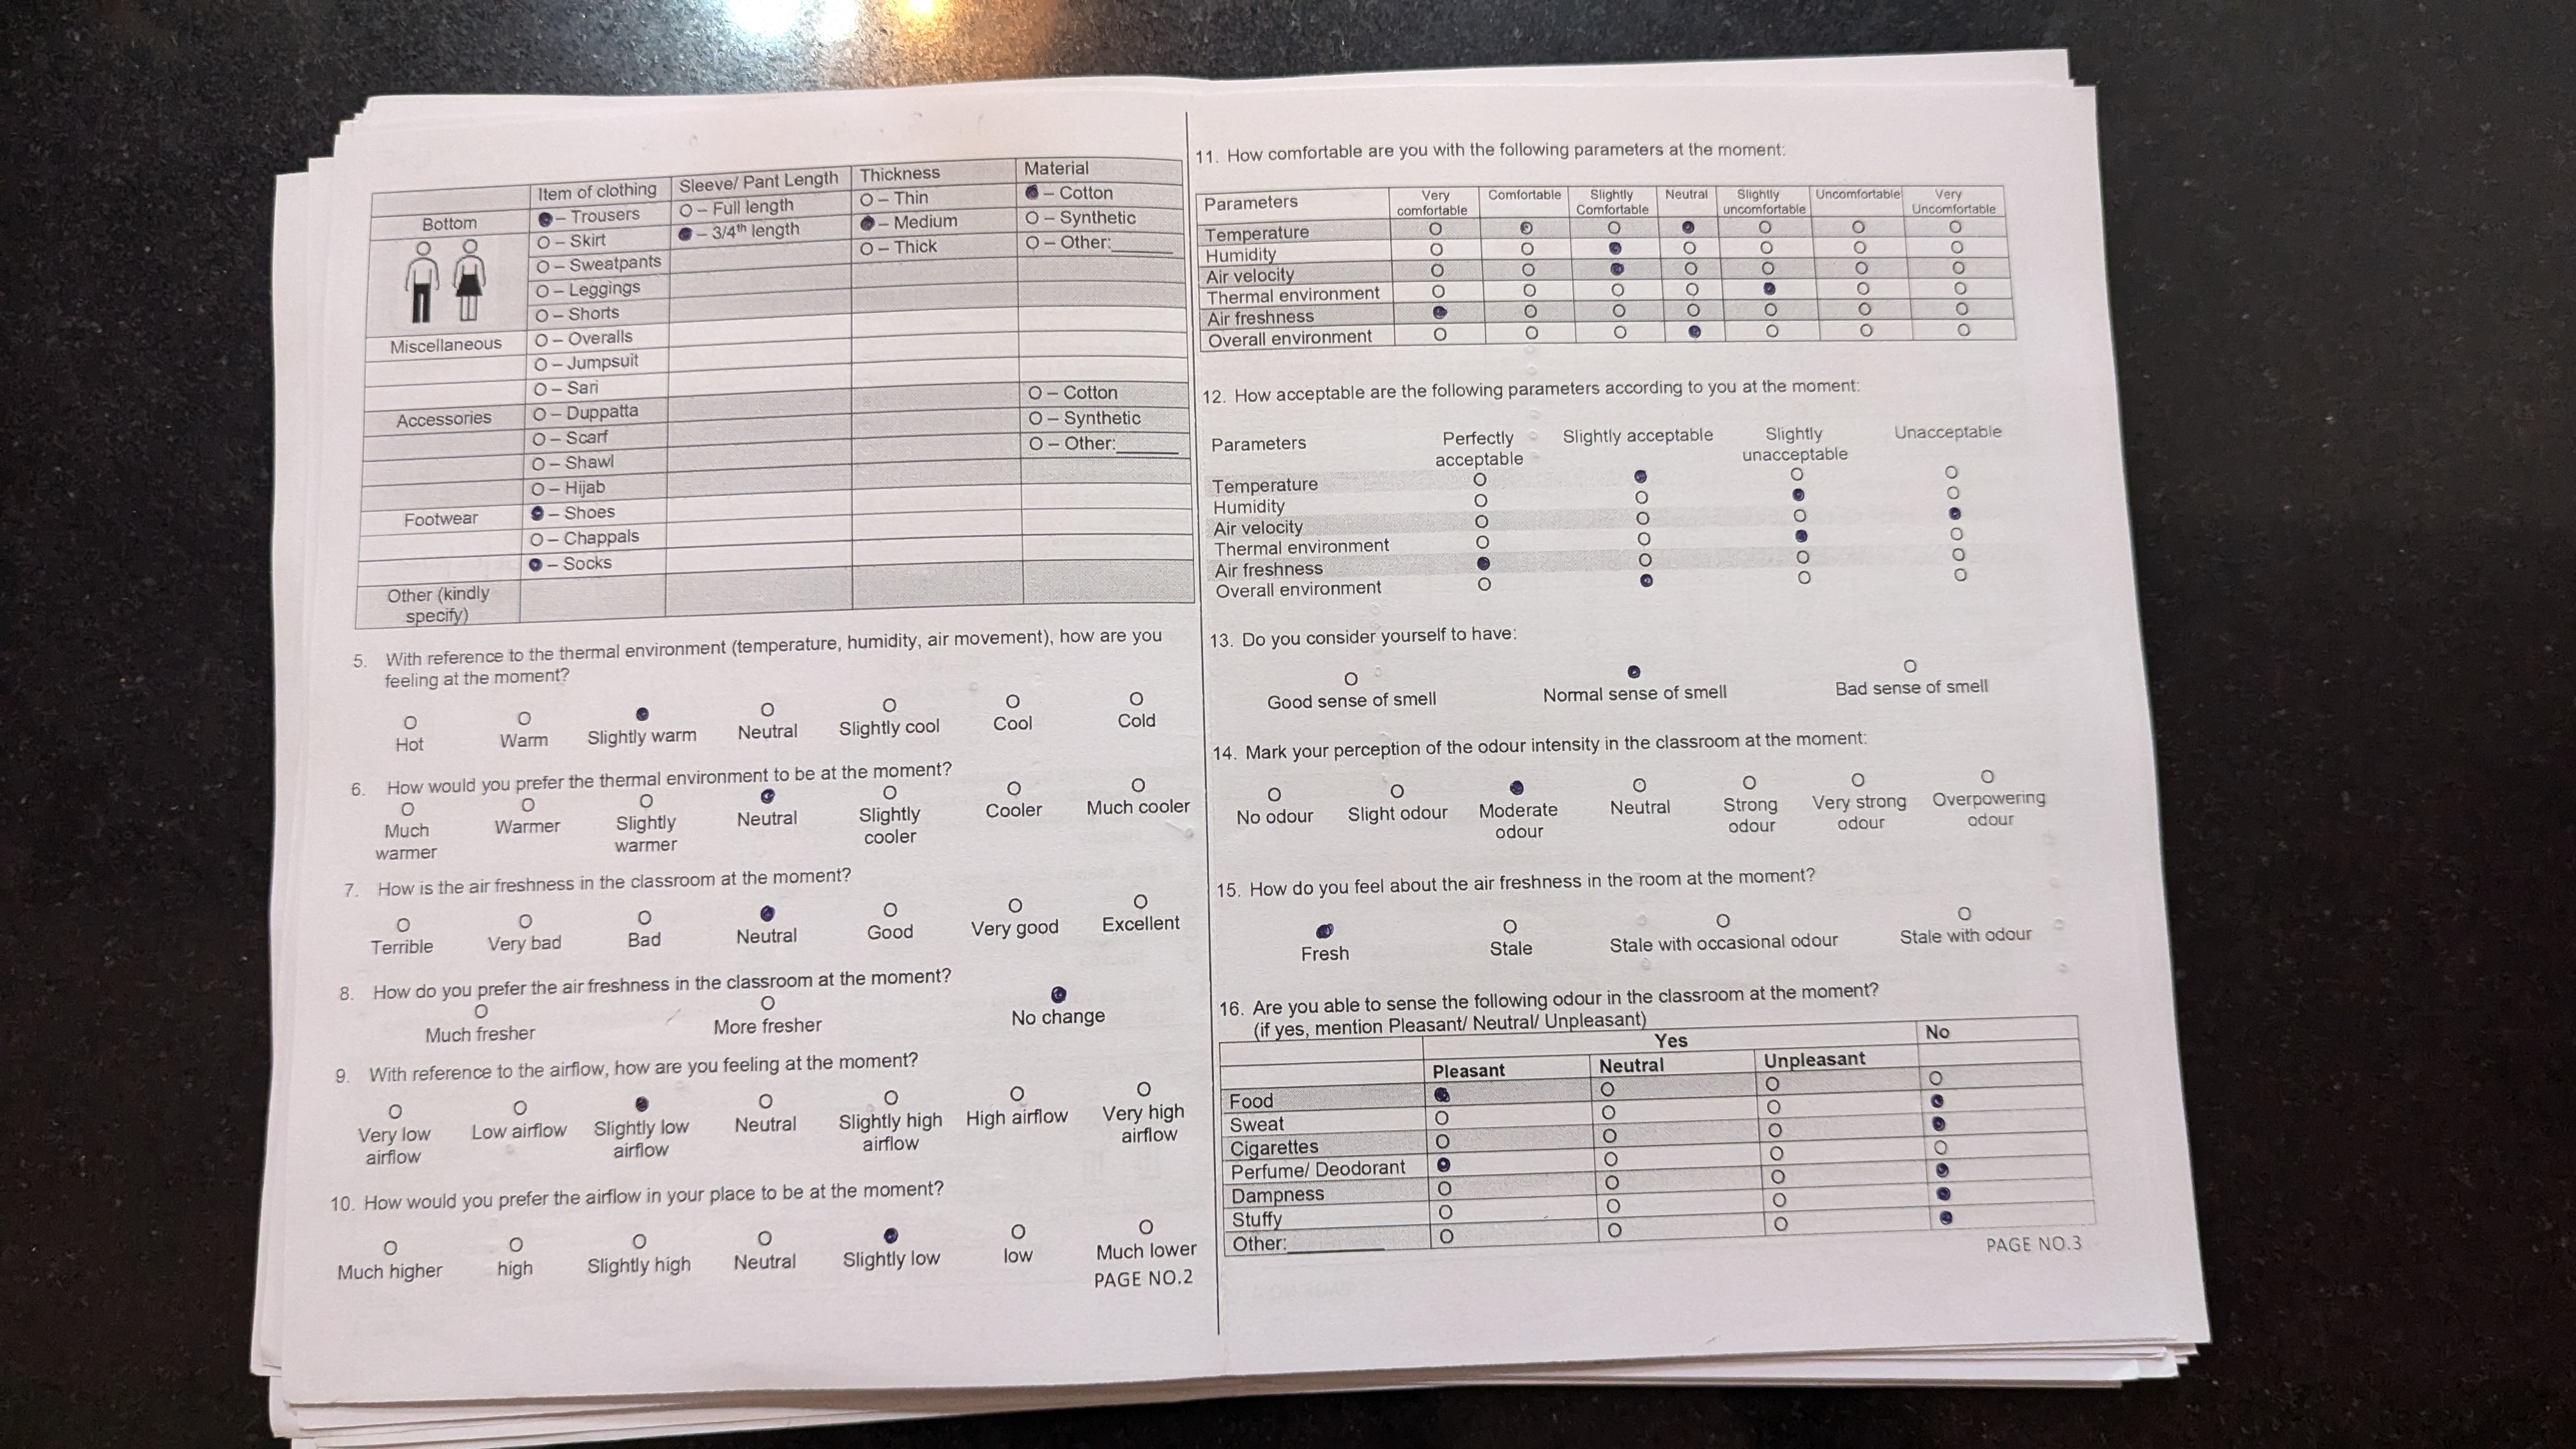 Item of clothing Sleeve/ Pant Length Thickness Material
Bottom
– Trousers O – Full length O – Thin – Cotton
O – Skirt – 3/4th length – Medium O – Synthetic
O – Sweatpants O – Thick O – Other:______
O – Leggings
O – Shorts
Miscellaneous O – Overalls
O – Jumpsuit
O – Sari
Accessories O – Duppatta O – Cotton
O – Scarf O – Synthetic
O – Shawl O – Other:______
O – Hijab
Footwear – Shoes
O – Chappals
– Socks
Other (kindly
specify)
5. With reference to the thermal environment (temperature, humidity, air movement), how are you
feeling at the moment?
Hot Warm Slightly warm Neutral Slightly cool Cool Cold
6. How would you prefer the thermal environment to be at the moment?
Much Warmer Slightly Neutral Slightly Cooler Much cooler
warmer warmer cooler
7. How is the air freshness in the classroom at the moment?
Terrible Very bad Bad Neutral Good Very good Excellent
8. How do you prefer the air freshness in the classroom at the moment?
Much fresher More fresher No change
9. With reference to the airflow, how are you feeling at the moment?
Very low Low airflow Slightly low Neutral Slightly high High airflow Very high
airflow airflow airflow airflow
10. How would you prefer the airflow in your place to be at the moment?
Much higher high Slightly high Neutral Slightly low low Much lower
PAGE NO.2
11. How comfortable are you with the following parameters at the moment:
Parameters Very Comfortable Slightly Neutral Slightly Uncomfortable Very
comfortable Comfortable uncomfortable Uncomfortable
Temperature
Humidity
Air velocity
Thermal environment
Air freshness
Overall environment
12. How acceptable are the following parameters according to you at the moment:
Parameters Perfectly Slightly acceptable Slightly Unacceptable
acceptable unacceptable
Temperature
Humidity
Air velocity
Thermal environment
Air freshness
Overall environment
13. Do you consider yourself to have:
Good sense of smell Normal sense of smell Bad sense of smell
14. Mark your perception of the odour intensity in the classroom at the moment:
No odour Slight odour Moderate Neutral Strong Very strong Overpowering
odour odour odour odour
15. How do you feel about the air freshness in the room at the moment?
Fresh Stale Stale with occasional odour Stale with odour
16. Are you able to sense the following odour in the classroom at the moment?
(if yes, mention Pleasant/ Neutral/ Unpleasant)
Yes No
Pleasant Neutral Unpleasant
Food
Sweat
Cigarettes
Perfume/ Deodorant
Dampness
Stuffy
Other:__________
PAGE NO.3